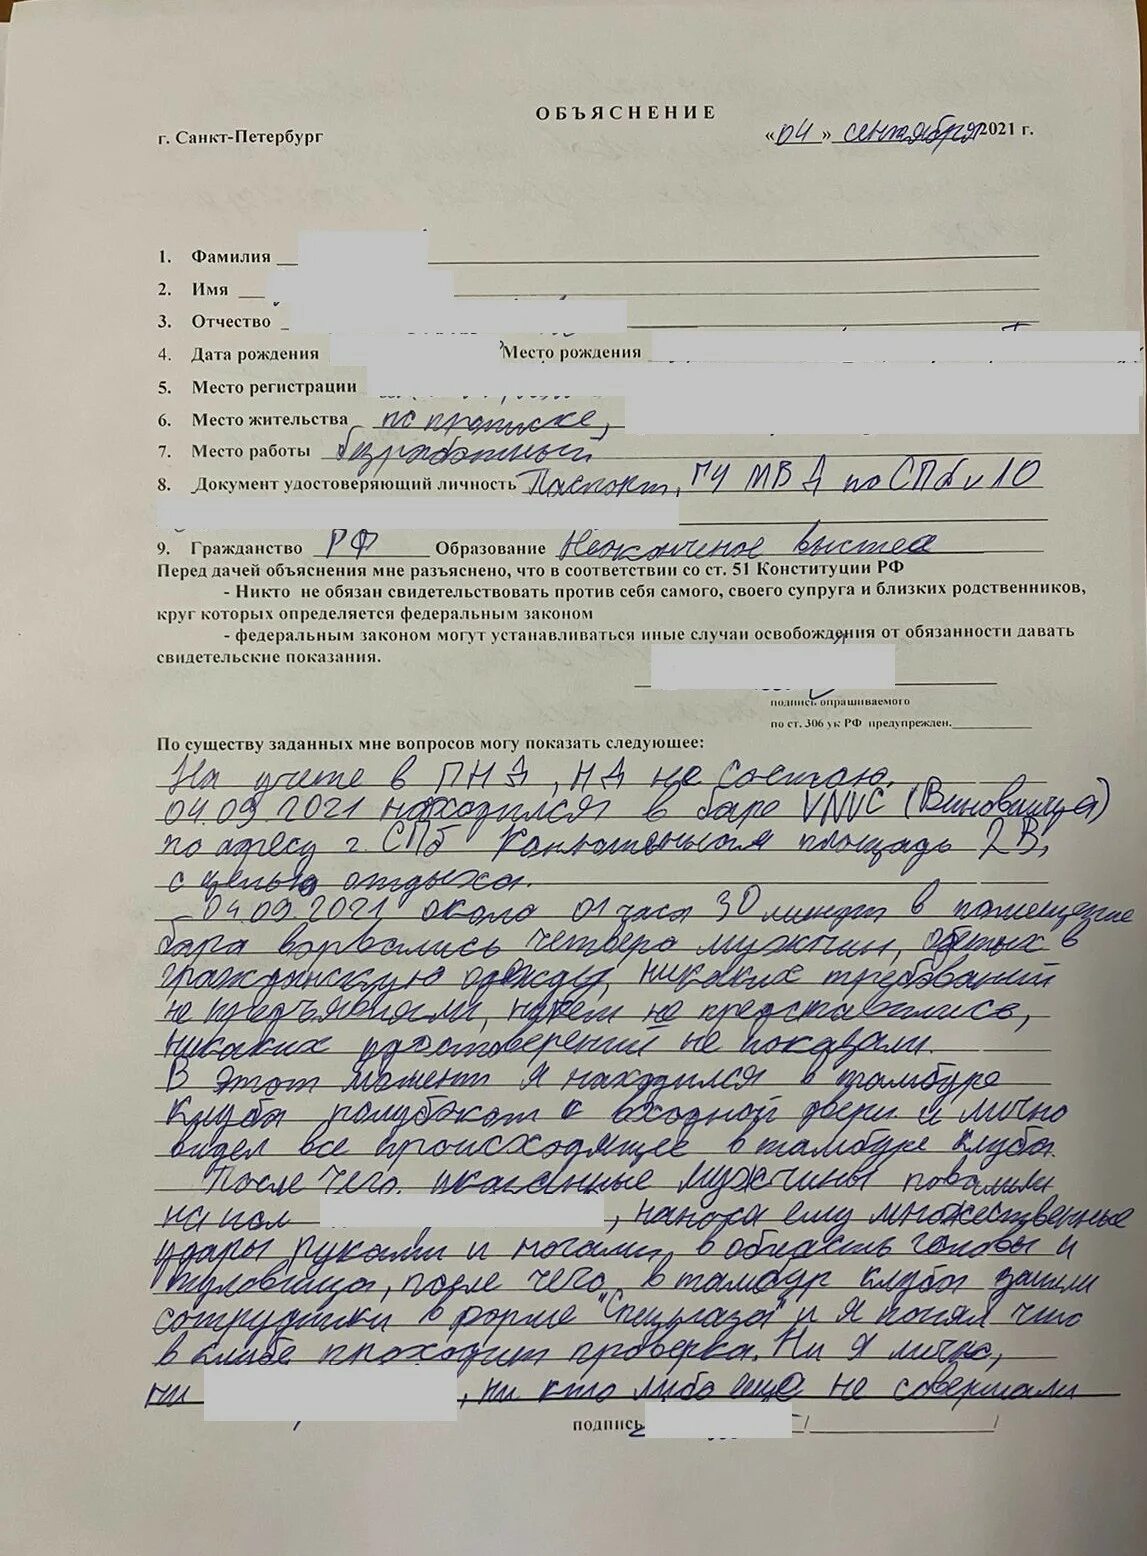 ОБЪЯСНЕНИЕ
г. Санкт-Петербург «04» сентября 2021 г.
1. Фамилия
2. Имя
3. Отчество
4. Дата рождения Место рождения
5. Место регистрации
6. Место жительства по прописке,
7. Место работы безработный
8. Документ удостоверяющий личность Паспорт, ГУ МВД по СПб и ЛО
9. Гражданство РФ Образование Неоконченое высшее
Перед дачей объяснения мне разъяснено, что в соответствии со ст. 51 Конституции РФ
- Никто не обязан свидетельствовать против себя самого, своего супруга и близких родственников,
круг которых определяется федеральным законом
- федеральным законом могут устанавливаться иные случаи освобождения от обязанности давать
свидетельские показания.
подпись опрашиваемого
по ст. 306 ук РФ предупрежден.
По существу заданных мне вопросов могу показать следующее:
На учете в ПНД, НД не состою,
04.09.2021 находился в баре VNVC (Виновница)
по адресу г. СПб Конюшенная площадь 2В,
с целью отдыха.
04.09.2021 около 01 часа 30 минут в помещение
бара ворвались четверо мужчин, одетых в
гражданскую одежду, никаких требований
не предъявляли, никем не представились,
никаких удостоверений не показали.
В этот момент я находился в тамбуре
клуба с входной двери и лично
видел все происходящее в тамбуре клуба.
После чего указанные мужчины повалили
на пол , нанося ему множественные
удары руками и ногами в область головы и
туловища, после чего в тамбур клуба зашли
сотрудники в форме "Спецназа" и я понял что
в клубе проходит проверка. Ни я лично,
ни , ни кто либо еще не совершали
подпись / /